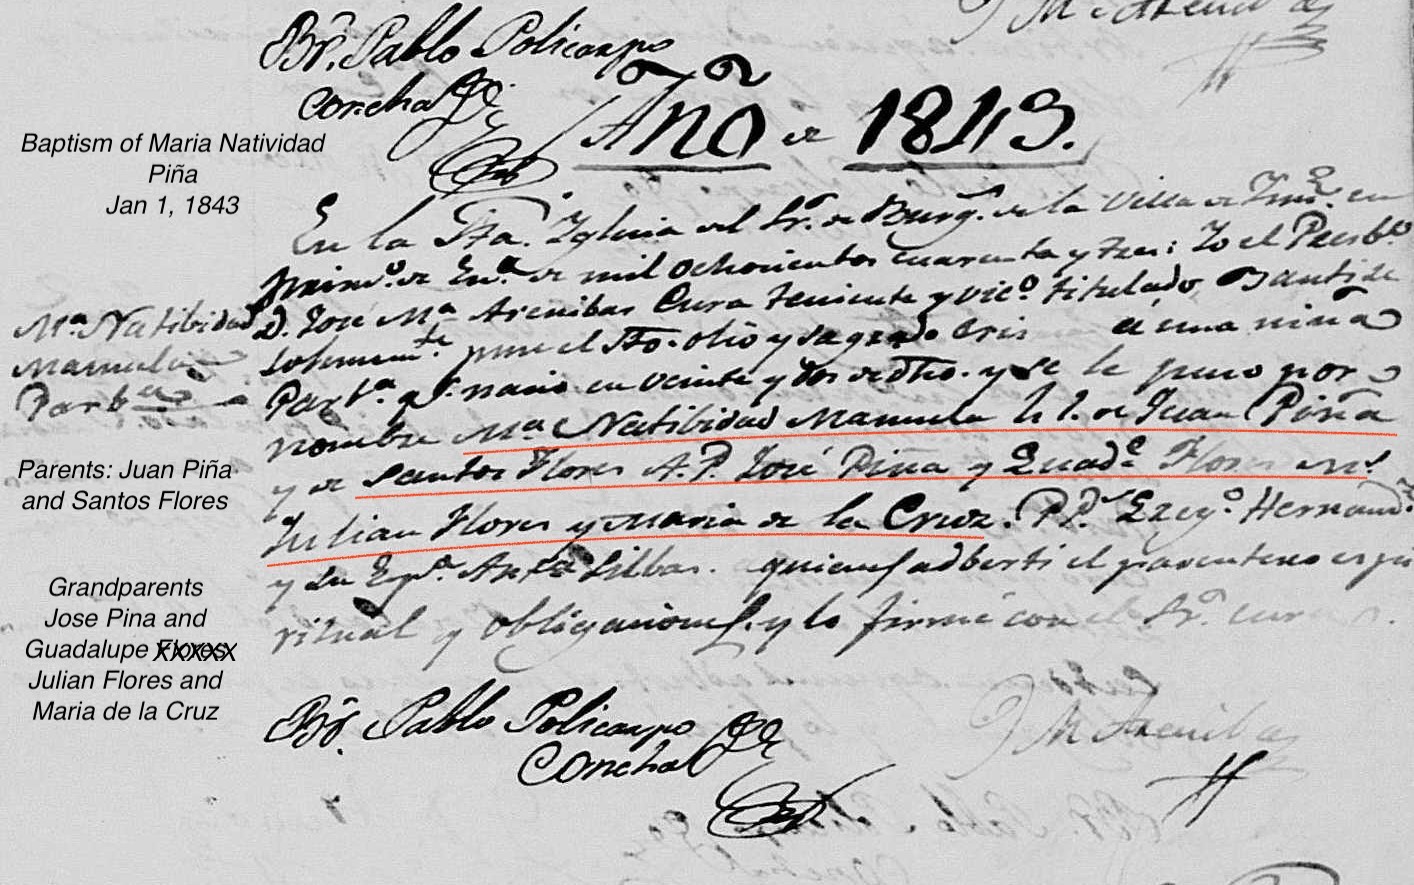 Br. Pablo Policarpo
Concha
Año de 1843.
Baptism of Maria Natividad
Piña
Jan 1, 1843
En la Sta. Iglecia del Sr. de Burg. de la Villa de en
primo. de En.o de mil ochocientos cuarenta y tres: Yo el Presb.o
D. José Ma. Arenibas Cura teniente y vic.o titulado, Bautisé
solemnem.te puse el Sto. olio y sagrado Cris a una niña
Parb.a q.e nació en veinte y dos de dho. y se le puso por
nombre Ma. Natibidad Manuela h. l. de Juan Piña
y de Santos Flores A. P. José Piña y Guad.e Flores M.s
Julian Flores y Maria de la Cruz. PP.s Hernand.
y su Esp.a quienes adberti el parentesco espi
ritual y obligaciones, y lo firmé con el Sr. cura.
Ma. Natibidad
Manuela
Parb.a
Parents: Juan Piña
and Santos Flores
Grandparents
Jose Pina and
Guadalupe Flores
Julian Flores and
Maria de la Cruz
Br. Pablo Policarpo
Concha
J M Arenibas